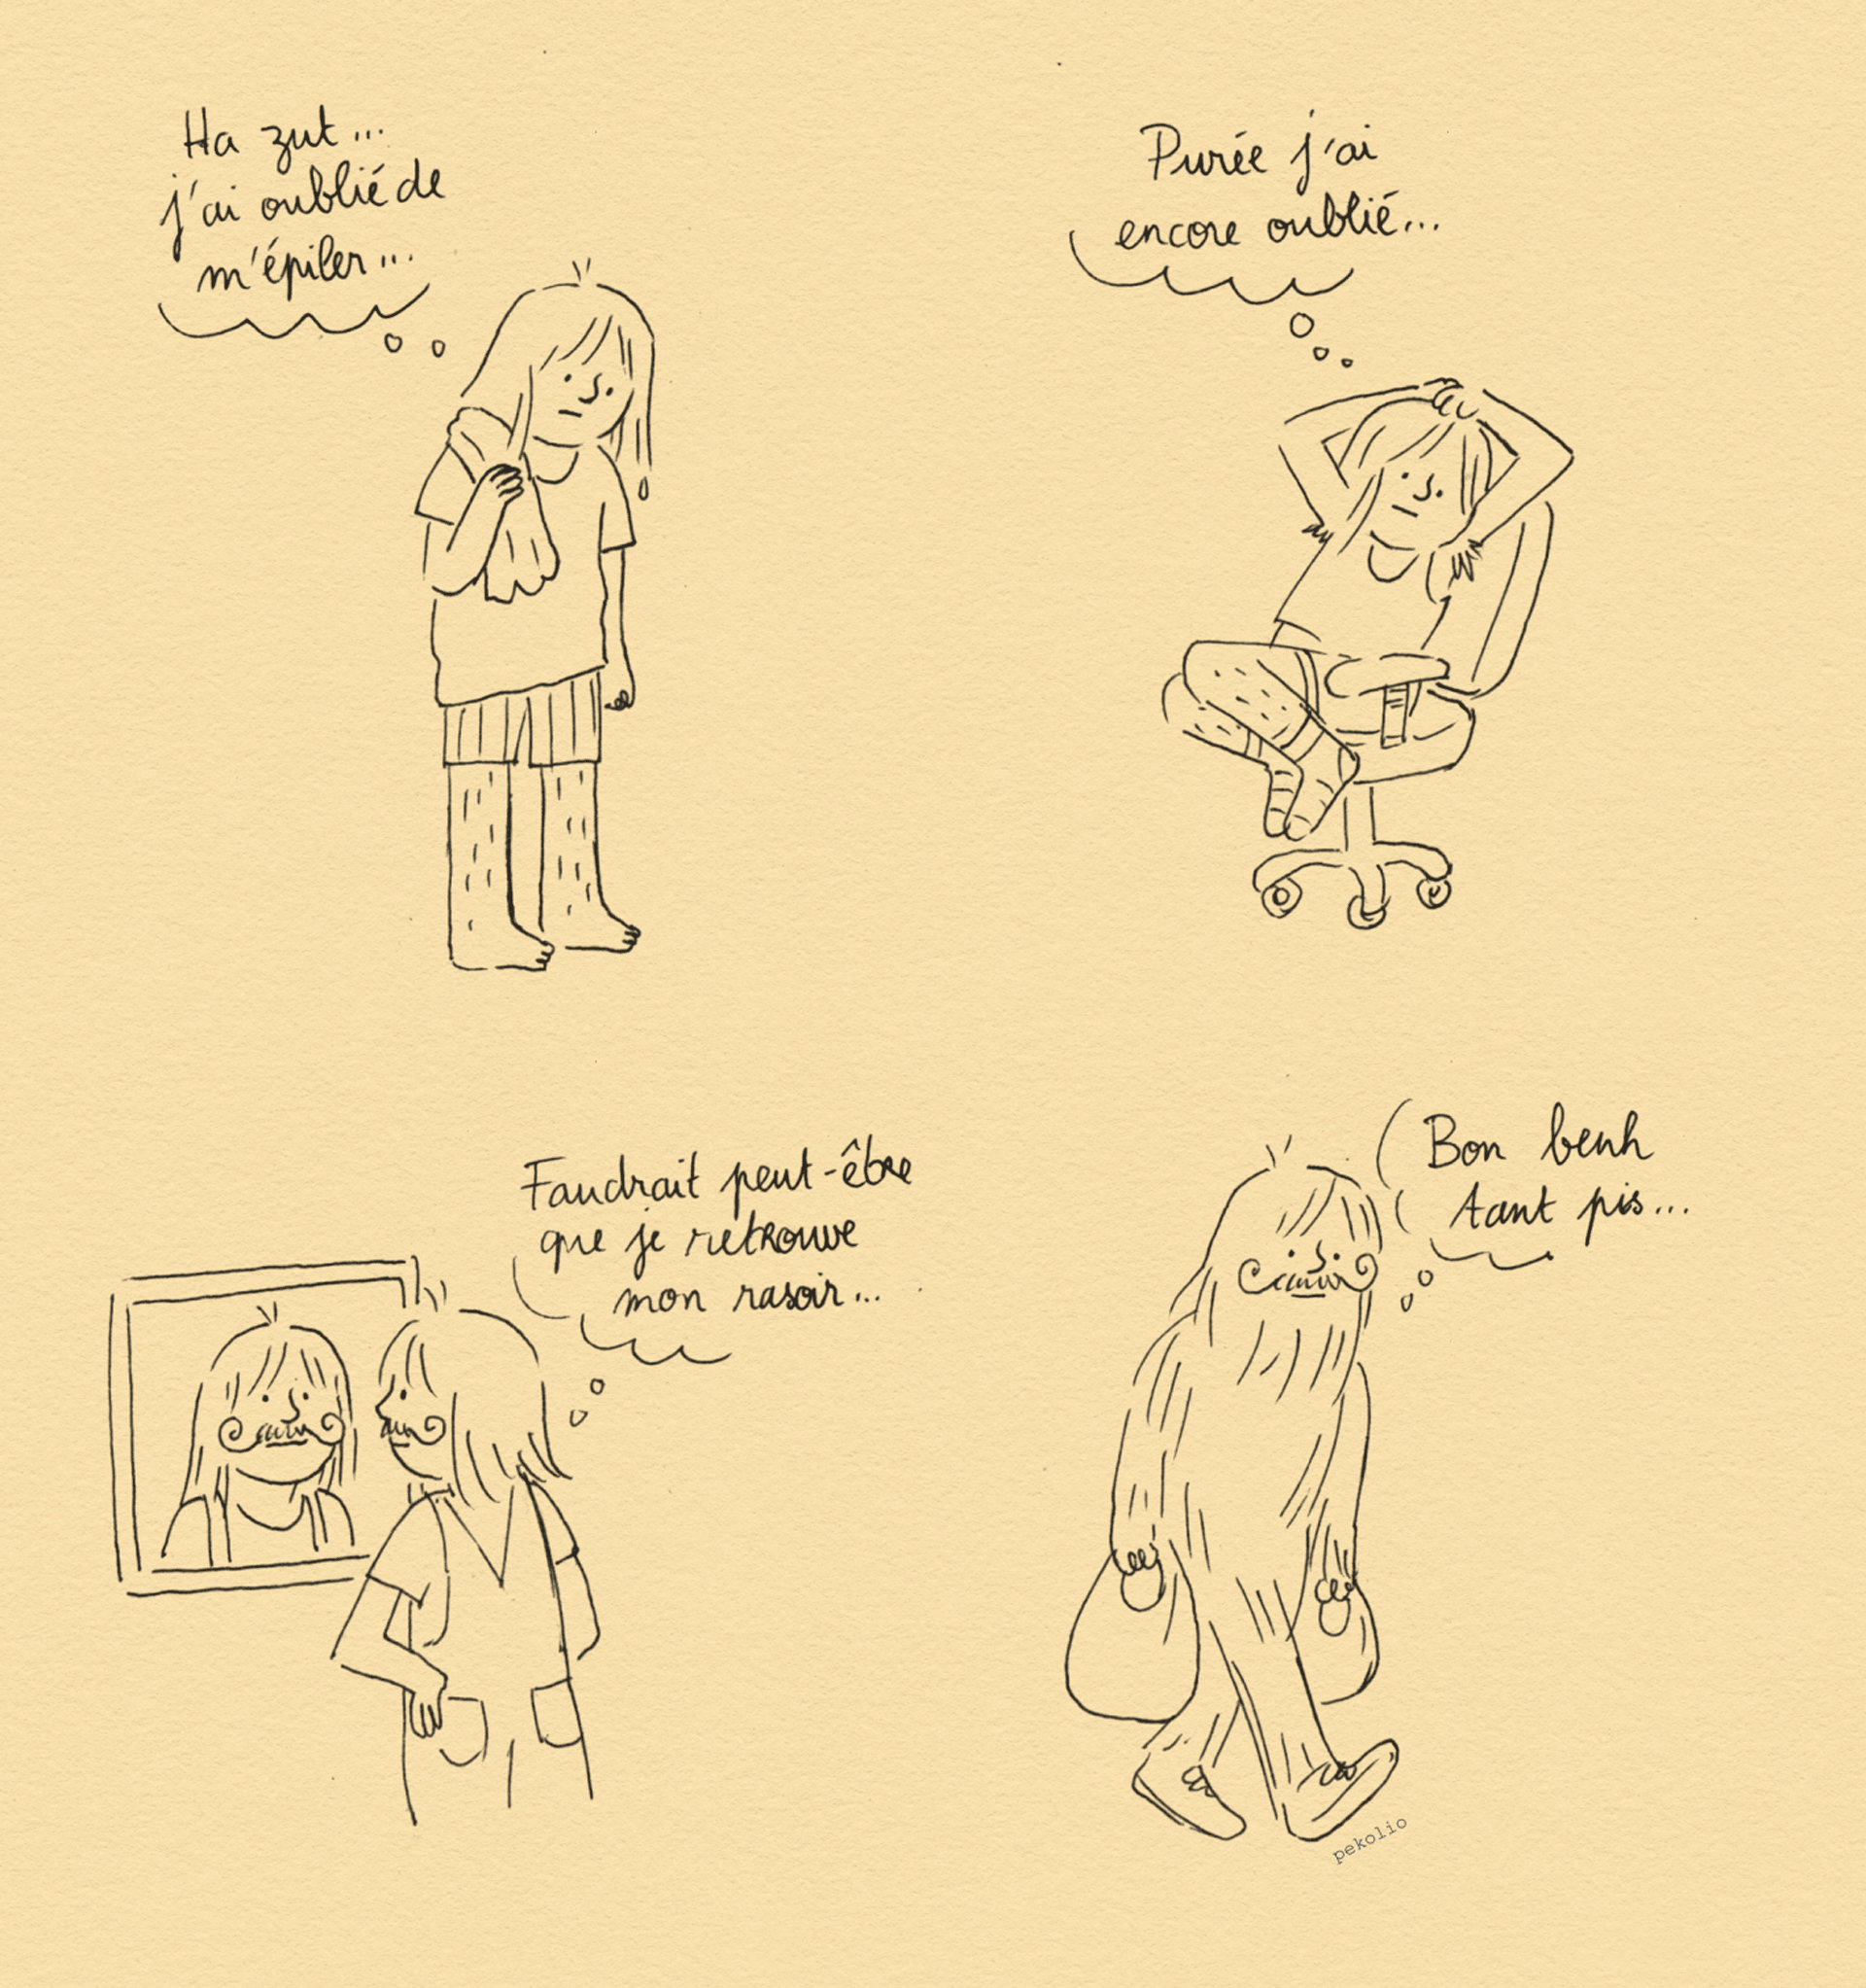 Ha zut...
j'ai oublié de
m'épiler...
Purée j'ai
encore oublié...
Faudrait peut-être
que je retrouve
mon rasoir...
Bon benh
tant pis...
pekolio